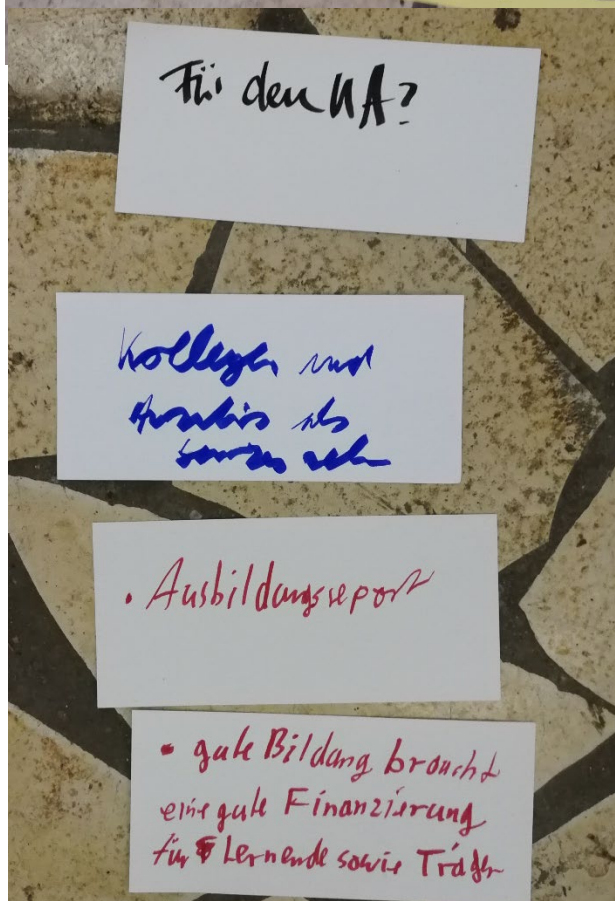 Für den UA?
Kollegen und
Azubis als
sehen
• Ausbildungsreport
• gute Bildung braucht
eine gute Finanzierung
für Lernende sowie Träger